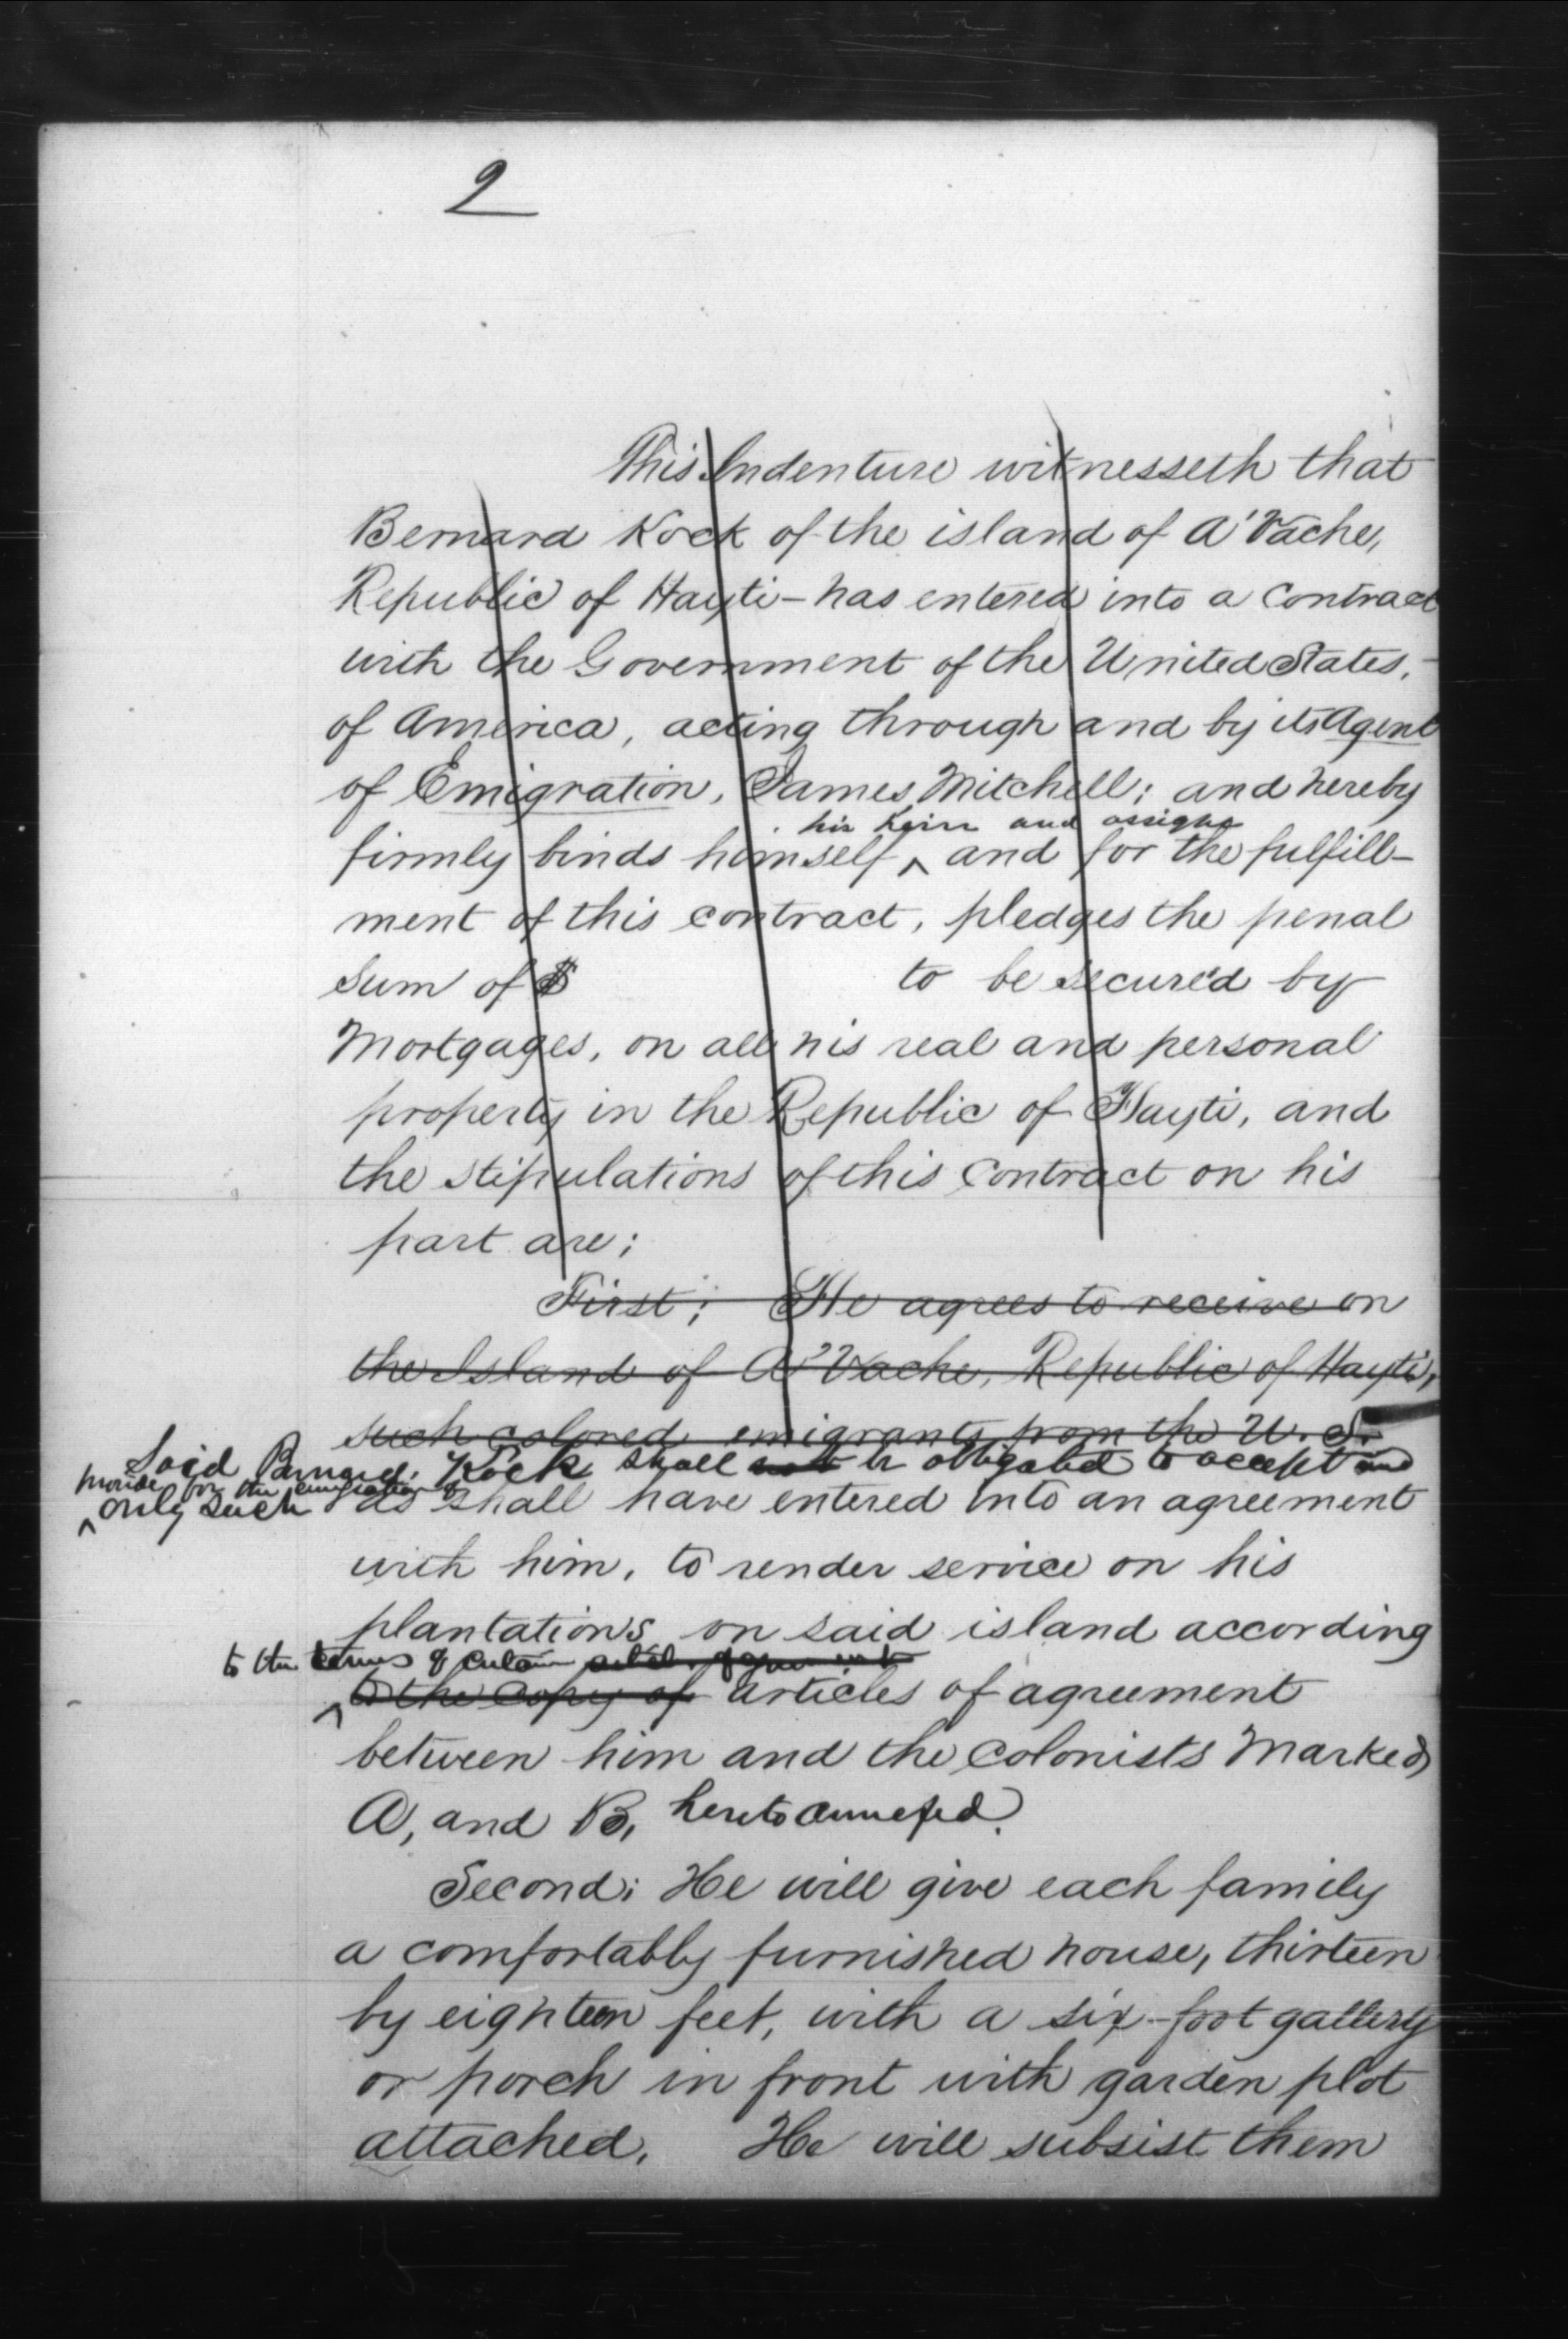 2
This Indenture witnesseth that
Bernard Kock of the island of A'Vache,
Republic of Hayti - has entered into a Contract
with the Government of the United States,
of America, acting through and by its Agent
of Emigration, James Mitchell; and hereby
his heirs and assigns
firmly binds himself ^ and for the fulfill-
ment of this contract, pledges the penal
Sum of $ to be secured by
Mortgages, on all his real and personal
property in the Republic of Hayti, and
the stipulations of this contract on his
part are;
First; He agrees to receive on
the Island of A'Vache, Republic of Hayti,
such colored emigrants from the U. S.
Said Bernard Kock shall not be obligated to accept and
provide for the emigration of
^ only such as shall have entered into an agreement
with him, to render service on his
plantations on said island according
to the terms of certain agreements
^ to the copy of articles of agreement
between him and the colonists marked
A, and B, hereto annexed.
Second; He will give each family
a comfortably furnished house, thirteen
by eighteen feet, with a six-foot gallery
or porch in front with garden plot
attached. He will subsist them